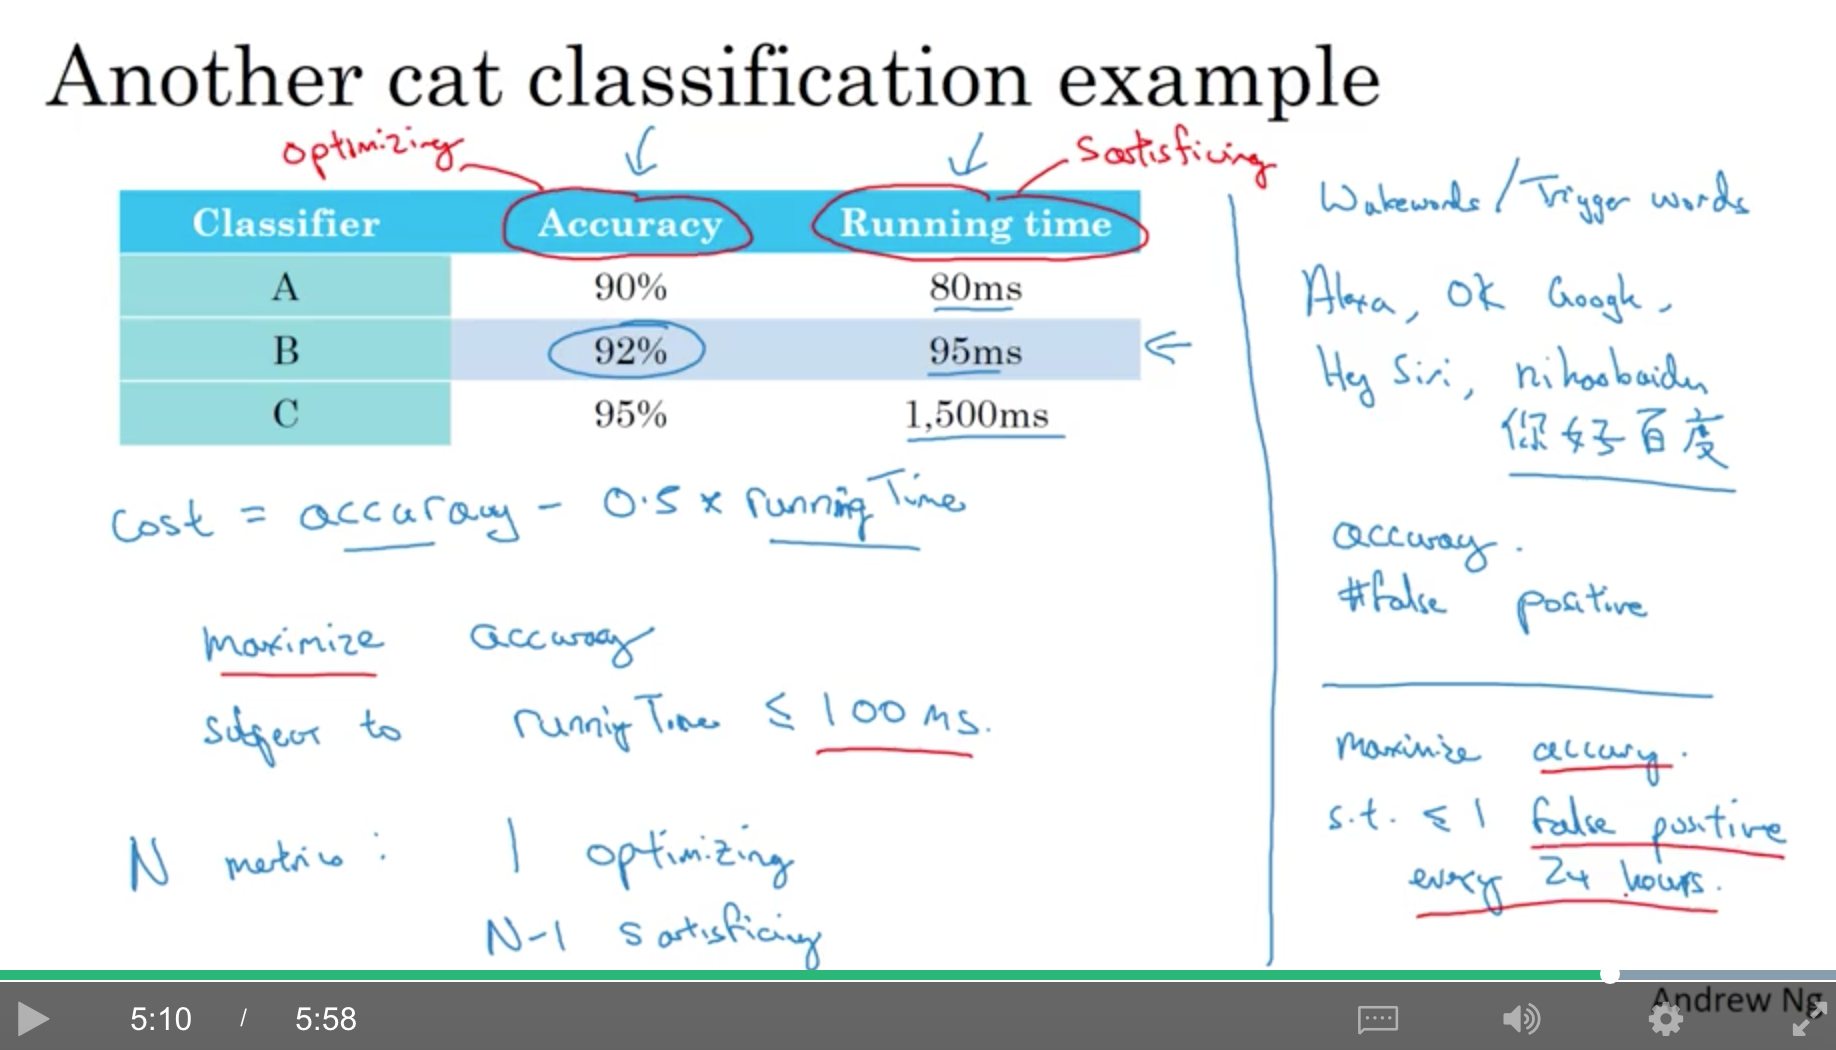 Another cat classification example
optimizing
satisficing
Classifier Accuracy Running time
A 90% 80ms
B 92% 95ms
C 95% 1,500ms
Cost = accuracy - 0.5 x running Time
maximize accuracy
subject to running Time ≤ 100 ms.
N metrics: 1 optimizing
N-1 satisficing
Wakewords / Trigger words
Alexa, OK Google,
Hey Siri, nihaobaidu
你好百度
accuracy.
#false positive
maximize accuracy.
s.t. ≤ 1 false positive
every 24 hours.
5:10 / 5:58
Andrew Ng